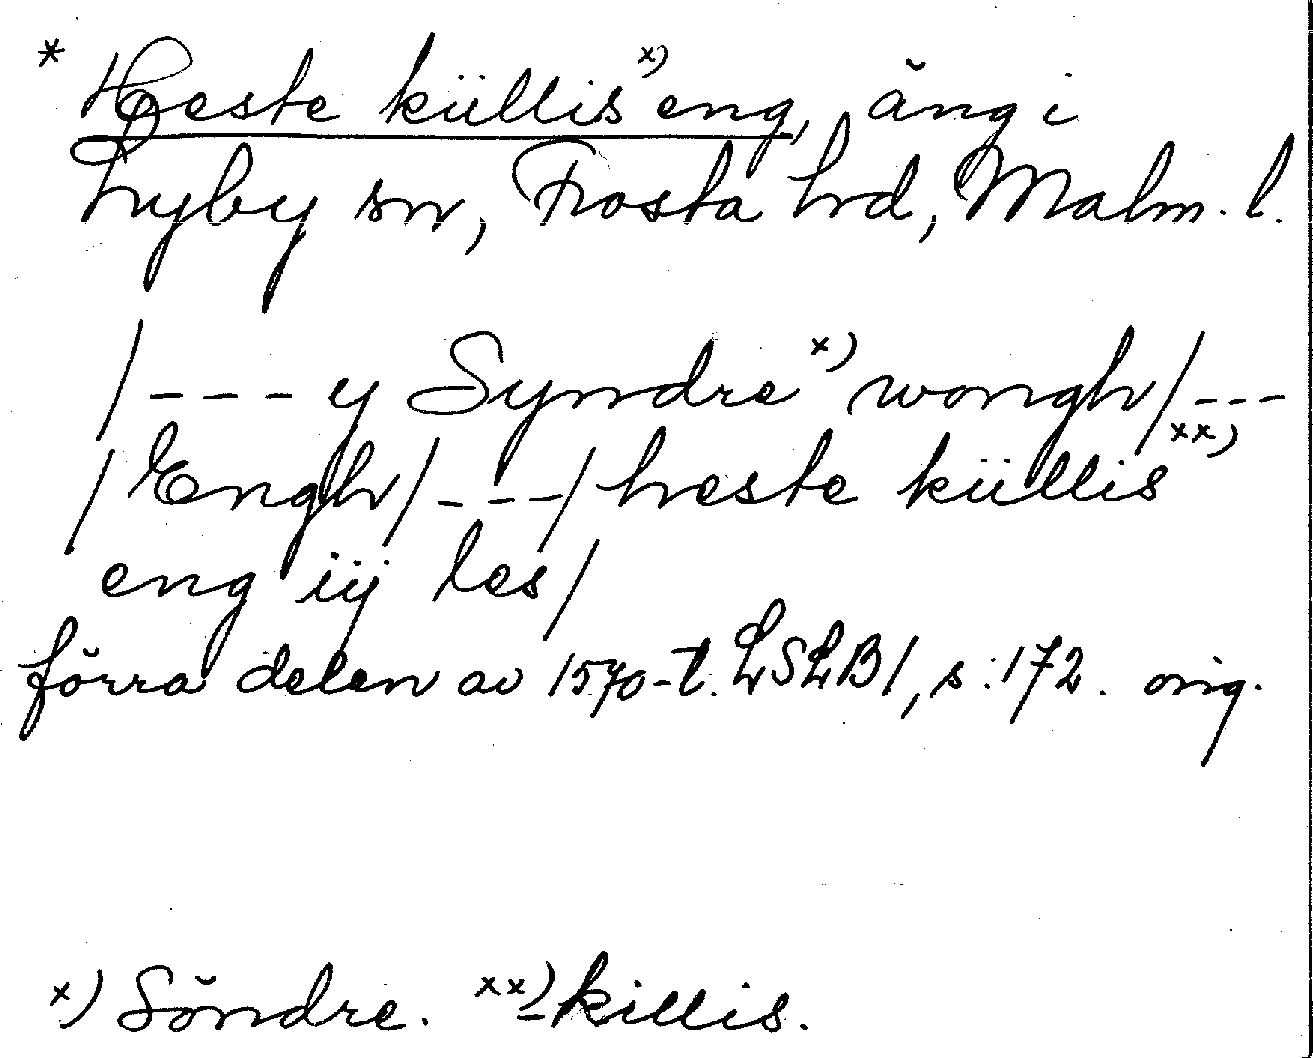 * Heste küllis x) eng, äng i
Lyby sn, Frosta hrd, Malm. l.
/ - - - y Syndre x) wongh / - - -
/ Engh / - - - / heste küllis xx)
eng iij les /
förra delen av 1570-t. LSLB1, s. 172. orig.
x) Söndre. xx) - killis.